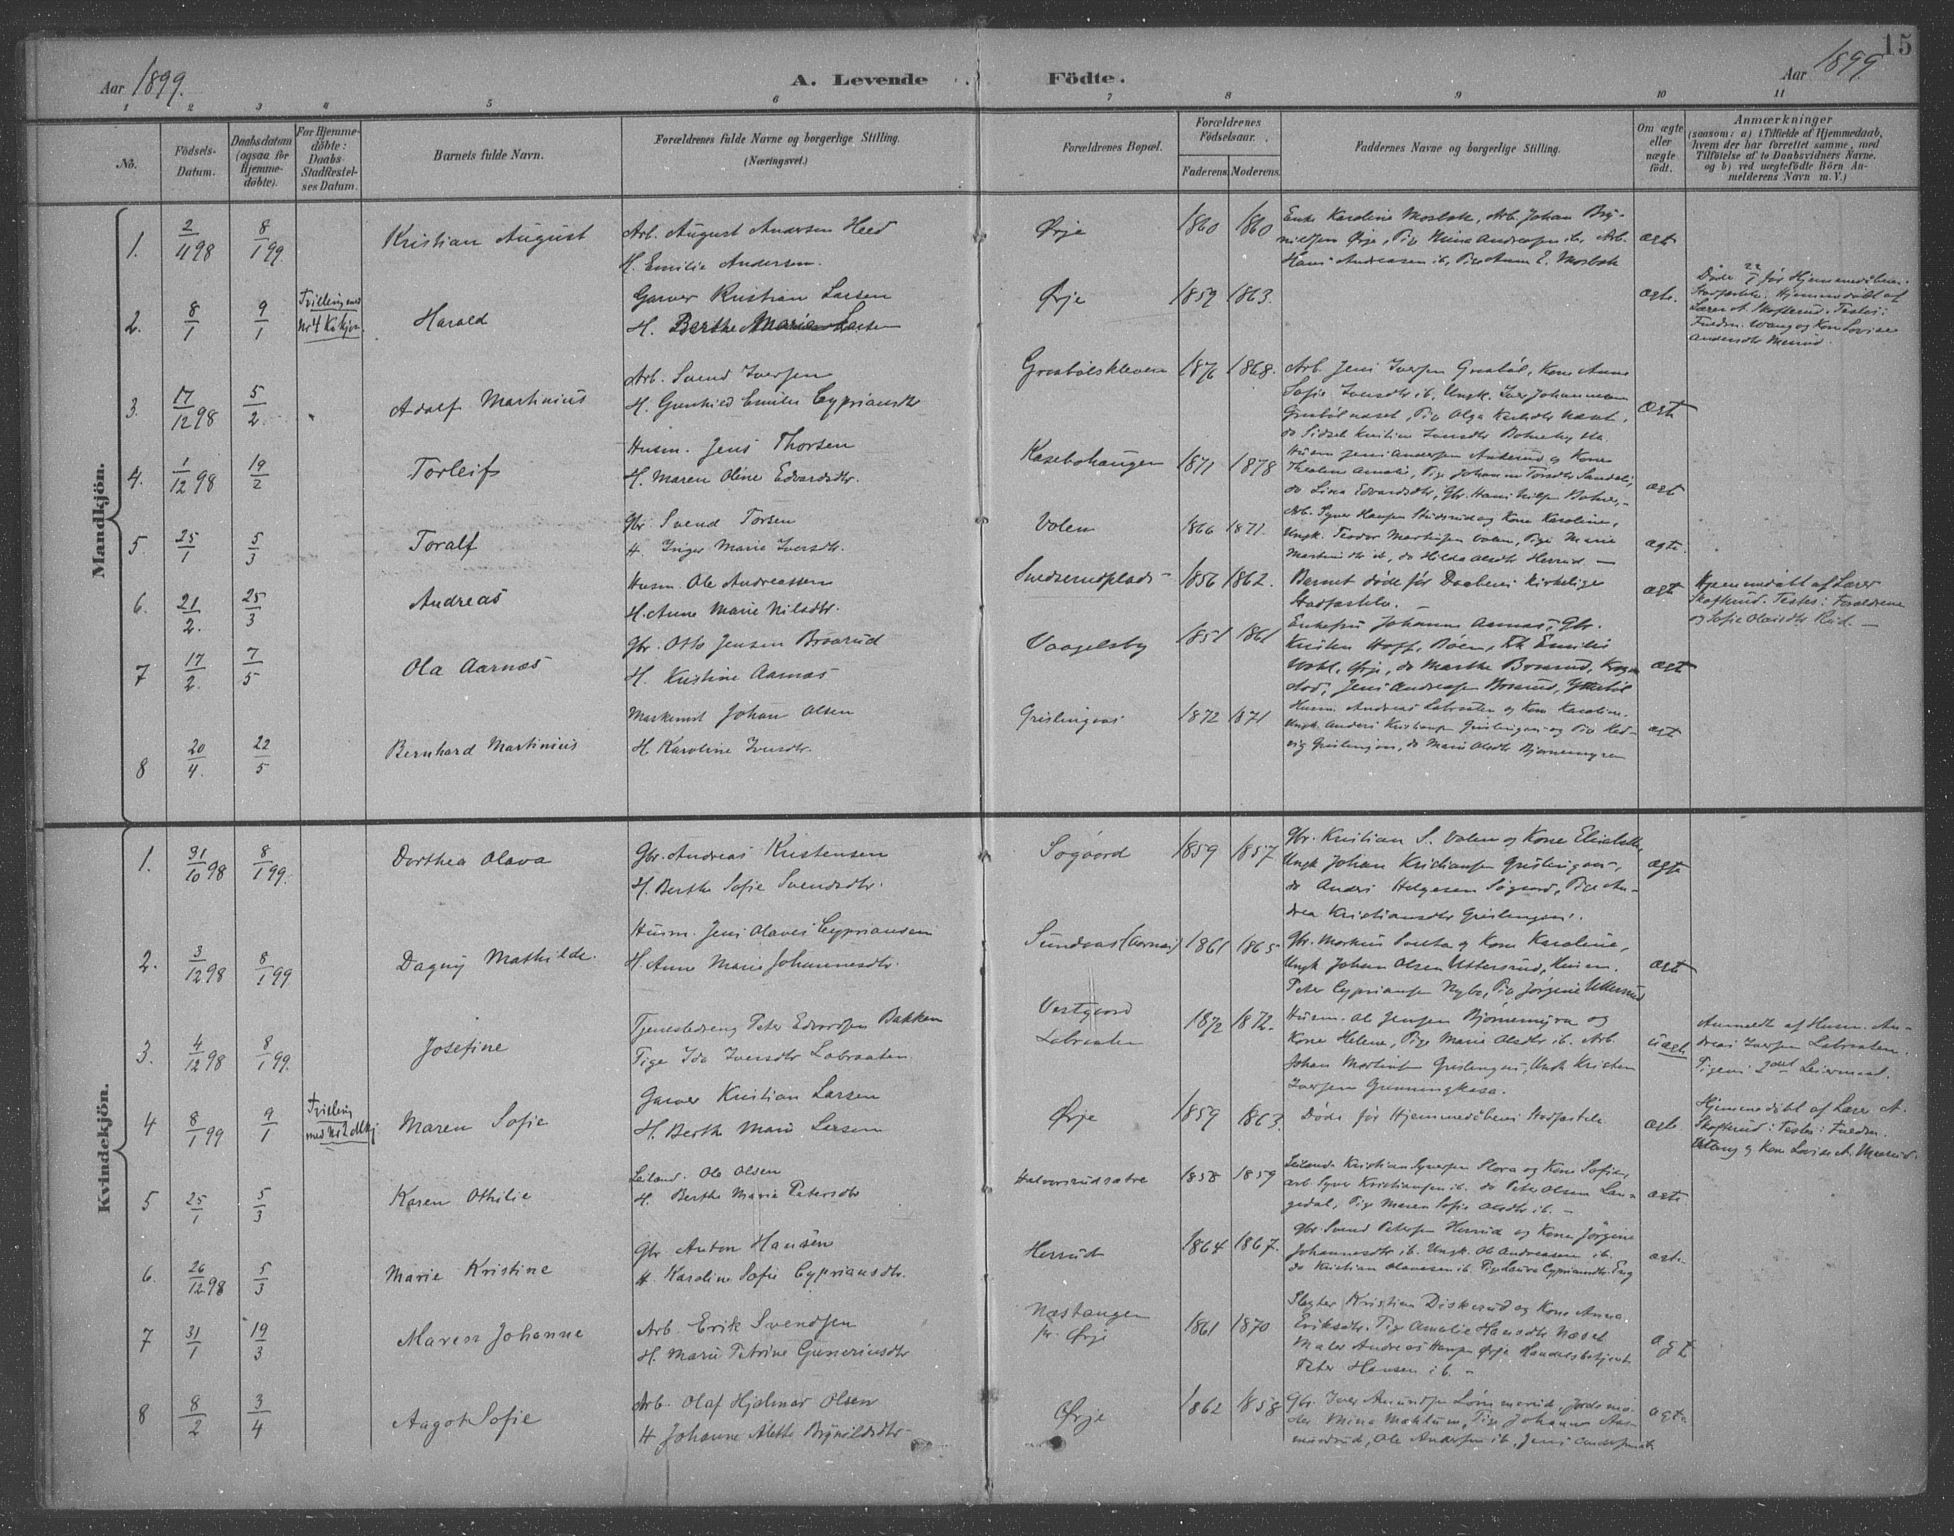 15
Aar 1899.
A. Levende Födte.
Aar 1899
1 2 3 4 5 6 7 8 9 10 11
No.
Födsels-Datum.
Daabsdatum (ogsaa for Hjemme-døbte).
For Hjemme-döbte: Daabs-Stadfæstel-ses Datum.
Barnets fulde Navn.
Forældrenes fulde Navne og borgerlige Stilling. (Næringsvei.)
Forældrenes Bopæl.
Forældrenes Födselsaar.
Faderens. Moderens.
Faddernes Navne og borgerlige Stilling.
Om ægte eller uægte født.
Anmærkninger
(saasom: a) i Tilfælde af Hjemmedaab, hvem der har forrettet samme, med Tilføielse af to Daabsvidners Navne, og b) ved uægtefödte Börn Anmelderens Navn m. V.)
Mandkjön.
1. 2/11 98 8/1 99. Kristian August
Arb. August Andersen Heed
H. Emilie Andersen.
Ørje 1860 1860
Enke Karoline Mosbæk, Arb. Johan Bry-
nildsen Ørje, Pige Mina Andreasen ib, Arb.
Hans Andreasen ib, Pige Anna E. Mosbæk
ægte
2. 8/1 9/1 Tvilling med No 4 Kvkjøn. Harald
Garver Kristian Larsen
H. Berthe Marie Larsen
Ørje 1859 1863. ægte.
Døde 22/1 før Hjemmedaabens
Stadfæstelse. Hjemmedøbt af
Lærer A. Skofterud. Testes:
Fuldm. Wang og Kone Lovise
Andersdtr Mærud.
3. 17/12 98 5/2. Adolf Martinius
Arb. Svend Iversen
H. Gunhild Emilie Cypriansdtr
Grasbølskleven 1876 1868.
Arb. Jens Iversen Grasbøl, Kone Anne
Sofie Iversdtr ib. Ungk. Iver Johannesen
Grasbøl næset, Pige Olga Karlsdtr Næset,
do Sidsel Kristine Iversdtr
ægte
4. 1/12 98 19/2 Torleif
Husm. Jens Thorsen
H. Maren Oline Edvardsdtr.
Kasebohaugen 1871 1878
Husm Jens Andersen og Kone
do Lina Edvardsdtr, Gbr. Hans Nilsen
ægte
5. 25/1 5/3 Toralf
Gbr. Svend Torsen
H. Inger Marie Iversdtr.
Volen 1866 1871.
Arb. Syver Hansen og Kone Karoline,
Ungk. Teodor Martinsen Volen, Pige Marie
do Hilda Olsdtr Herrud. —
ægte.
6. 21/2. 25/3 Andreas
Husm. Ole Andreassen
H. Anne Marie Nilsdtr.
1856 1862.
Barnet døde før Daabens kirkelige
Stadfæstelse. —
ægte
Hjemmedøbt af Lærer
Skofterud. Testes: Forældrene
og Sofie Olausdtr Rud. —
7 17/2. 7/5 Ola Aarnæs
Gbr. Otto Jensen Braarud
H. Kristine Aarnæs
Vaagelsby 1851 1861
Enkefru Johanne Aarnæs, Gbr.
Kristen Hoff, Bøen, Frk Emilie
Wahl, Ørje, do Marthe Braarud,
Jens Andreasen Braarud,
ægte
8 20/4. 22/5 Bernhard Martinius
Johan Olsen
H. Karoline Iversdtr.
Grislingaas 1872 1871
Husm. Andreas Labraaten og Kone Karoline.
Ungk. Anders Kristiansen Grislingaas og Pige Hed-
vig Grislingaas, do Marie Olsdtr Bjørnemyren
ægte
Kvindekjön.
1. 31/10 98 8/1 99. Dorthea Olava
Gbr. Andreas Kristensen
H. Berthe Sofie Svendsdtr.
Søgaard 1859 1857
Gbr. Kristian S. Volen og Kone Elisabeth,
Ungk Johan Kristiansen Grislingaas,
do Anders Helgesen Søgaard, Pige An-
drea Kristiansdtr Grislingaas.
ægte
2. 3/12 98 8/1 99 Dagny Mathilde.
Husm. Jens Olaves Cypriansen
H. Anne Marie Johannesdtr.
Sundaas (Aarnæs) 1861 1865
Gbr. Markus og Kone Karoline,
Ungk Johan Olsen Uttersrud, Husm.
Peter Cypriansen Nybø, Pige Jørgine Uttersrud
ægte
3. 4/12 98 8/1 99. Josefine
Tjenestedreng Peter Edvardsen Bakken
Pige Ida Iversdtr Labraaten.
Vestgaard
Labraaten
1872 1872.
Husm. Ole Jensen Bjørnemyra og
Kone Helene, Pige Marie Olsdtr ib. Arb.
Johan Martinsen Grislingaas, Ungk Kristen
Iversen Grønningkasa.
uægte
Anmeldt af Husm. An-
dreas Iversen Labraaten.
Pigens 2det Leiermaal.
4 8/1 99 9/1 Tvilling med No 2 Mkj Maren Sofie
Garver Kristian Larsen
H. Berthe Marie Larsen
Ørje 1859 1863.
Døde før Hjemmedaabens Stadfæstelse
ægte.
Hjemmedøbt af Lærer A.
Skofterud: Testes: Fuldm.
Wang og Kone Lovise A. Mærud.
5 25/1 5/3 Karen Othilie
Leiland. Ole Olsen
H. Berthe Marie Petersdtr
Halvorsrudsætre 1858 1859
Leilænd. Kristian Syversen Flora og Kone Sofie,
Arb Syver Kristiansen ib. do Peter Olsen Lan-
gedal, Pige Maren Sofie Olsdtr ib. —
ægte
6. 26/12 98 5/3 Marie Kristine
Gbr Anton Hansen
H. Karoline Sofie Cypriansdtr.
Herrud 1864 1867.
Gbr. Svend Petersen Herrud og Kone Jørgine
Johannesdtr ib. Ungk. Ole Andreasen ib.
do Kristian Olavesen ib. Pige Laura Cypriansdtr. Eng
ægte.
7 31/1 19/3 Maren Johanne
Arb. Erik Svendsen
H. Marie Petrine Guneriusdtr
Næstangen
pr. Ørje
1861 1870
Slagter Kristian Diskerud og Kone Anna
Eriksdtr. Pige Amalie Hansdtr Næset
Maler Andreas Hansen Ørje Handelsbetjent
Peter Hansen ib. —
ægte
8 8/2 3/4 Aagot Sofie
Arb. Olaf Hjalmar Olsen
H Johanne Alette Brynildsdtr
Ørje 1862 1858
Gbr. Iver Amundsen Jordmo-
der Mina Pige Johanne Aas-
mundrud, Ole Andersen ib, Jens Andersen ib
ægte